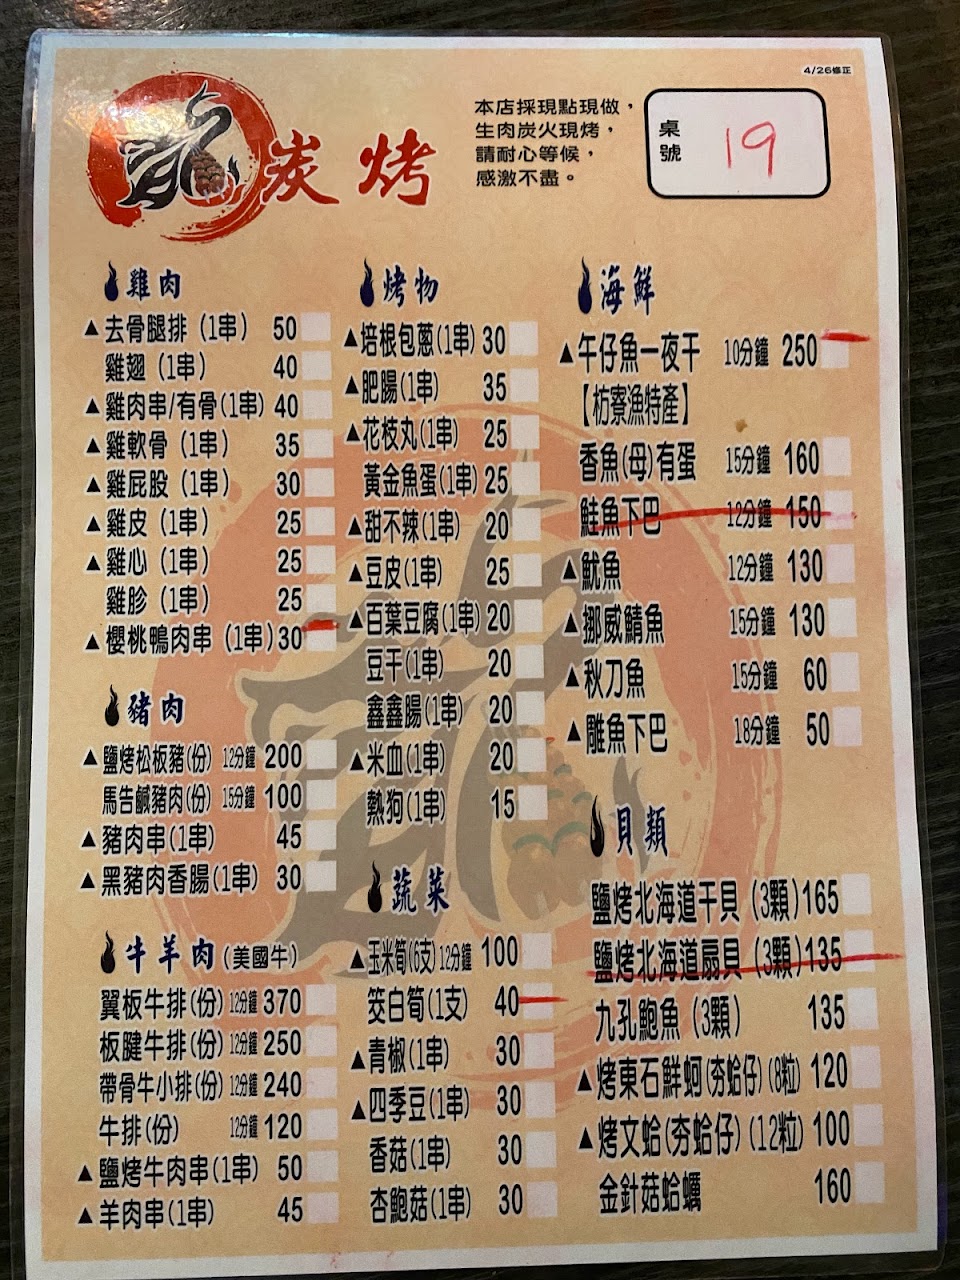 4/26修正
炭烤
本店採現點現做，
生肉炭火現烤，
請耐心等候，
感激不盡。
桌號 19
雞肉
▲去骨腿排（1串） 50
雞翅（1串） 40
▲雞肉串/有骨(1串) 40
▲雞軟骨（1串） 35
▲雞屁股（1串） 30
▲雞皮（1串） 25
▲雞心（1串） 25
雞胗（1串） 25
▲櫻桃鴨肉串（1串）30
豬肉
▲鹽烤松板豬(份) 12分鐘 200
馬告鹹豬肉(份) 15分鐘 100
▲豬肉串(1串) 45
▲黑豬肉香腸(1串) 30
牛羊肉(美國牛)
翼板牛排(份) 12分鐘 370
板腱牛排(份) 12分鐘 250
帶骨牛小排(份) 12分鐘 240
牛排(份) 12分鐘 120
▲鹽烤牛肉串(1串) 50
▲羊肉串(1串) 45
烤物
▲培根包蔥(1串) 30
▲肥腸(1串) 35
▲花枝丸(1串) 25
黃金魚蛋(1串) 25
▲甜不辣(1串) 20
▲豆皮(1串) 25
▲百葉豆腐(1串) 20
豆干(1串) 20
鑫鑫腸(1串) 20
▲米血(1串) 20
熱狗(1串) 15
蔬菜
▲玉米筍(6支) 12分鐘 100
筊白筍(1支) 40
▲青椒(1串) 30
▲四季豆(1串) 30
香菇(1串) 30
杏鮑菇(1串) 30
海鮮
▲午仔魚一夜干 10分鐘 250
【枋寮漁特產】
香魚(母)有蛋 15分鐘 160
鮭魚下巴 12分鐘 150
▲魷魚 12分鐘 130
▲挪威鯖魚 15分鐘 130
▲秋刀魚 15分鐘 60
▲雕魚下巴 18分鐘 50
貝類
鹽烤北海道干貝（3顆）165
鹽烤北海道扇貝（3顆）135
九孔鮑魚（3顆） 135
▲烤東石鮮蚵(夯蛤仔)(8粒) 120
▲烤文蛤(夯蛤仔)(12粒) 100
金針菇蛤蠣 160